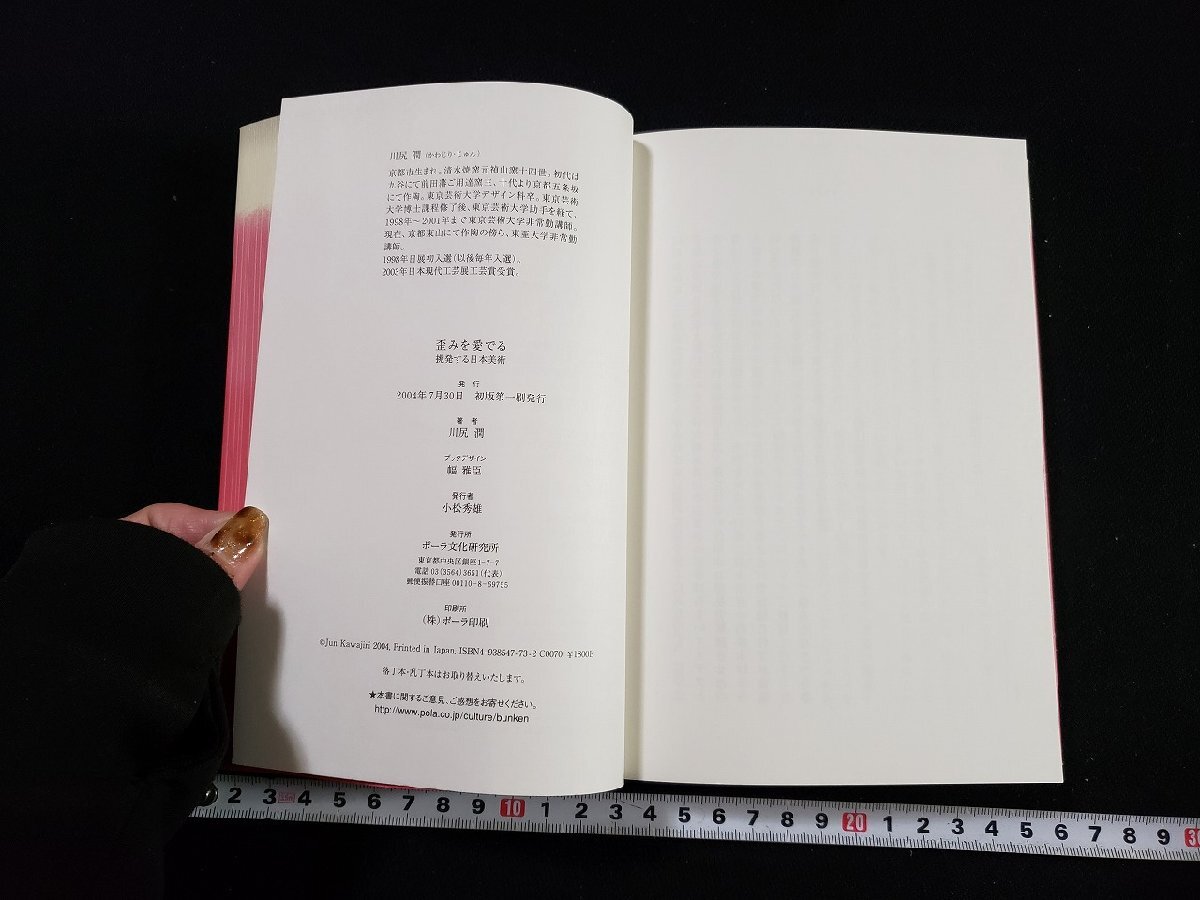 川尻 潤 (かわじり・じゅん)
京都市生まれ。清水焼窯元祖山窯十四世。初代は
九谷にて前田藩ご用達窯三、一代より京都五条坂
にて作陶。東京芸術大学デザイン科卒。東京芸術
大学博士課程修了後、東京芸術大学助手を経て、
1998年〜2001年まで東京芸術大学非常勤講師。
現在、京都東山にて作陶の傍ら、東亜大学非常勤
講師。
1998年日展初入選(以後毎年入選)。
日本現代工芸展工芸賞受賞。
歪みを愛でる
挑発する日本美術
発 行
2004年7月30日 初版第一刷発行
著 者
川尻 潤
ブックデザイン
幅 雅臣
発行者
小松秀雄
発行所
ポーラ文化研究所
東京都中央区銀座
電話 03(3564)3651(代表)
郵便振替口座 00110-8-
印刷所
(株)ポーラ印刷
©Jun Kawajiri 2004, Printed in Japan, ISBN4 938547-73-2 C0070 ¥1800E
落丁本・乱丁本はお取り替えいたします。
★本書に関するご意見、ご感想をお寄せください。
http://www.pola.co.jp/culture/bunken
2 3 4 5 6 7 8 9 10 1 2 3 4 5 6 7 8 9 20 1 2 3 4 5 6 7 8 9 30